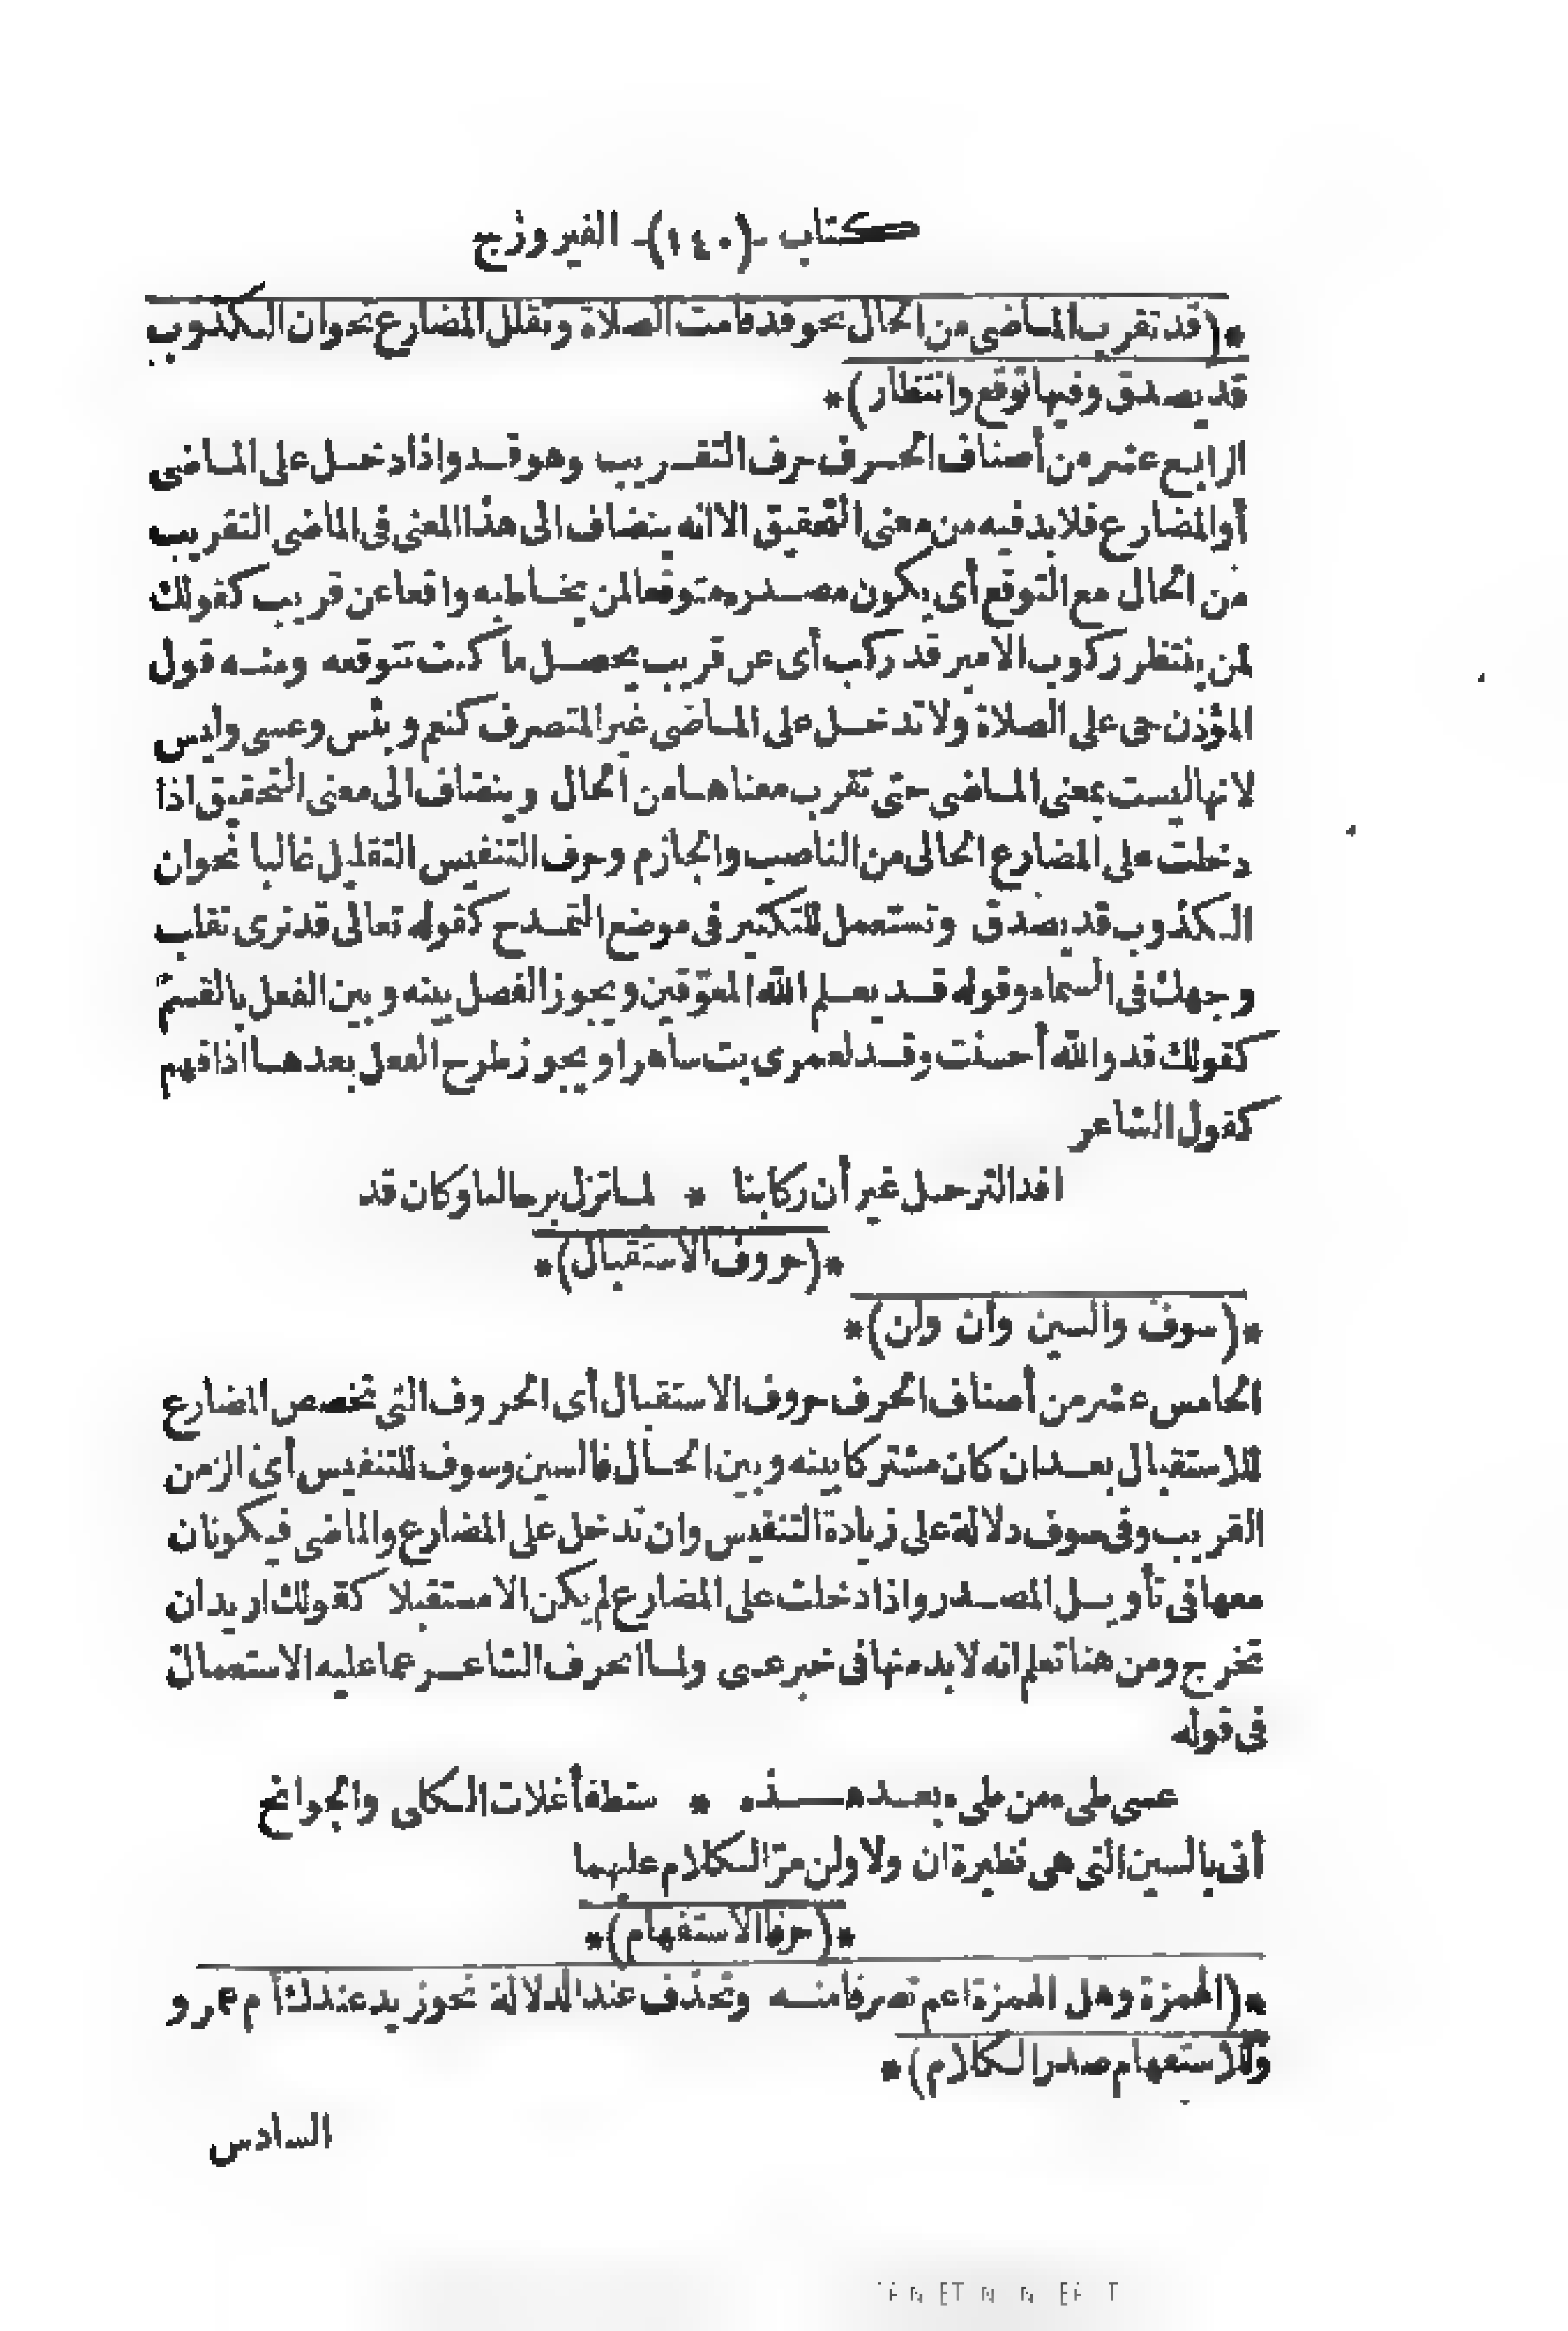 كتاب -(١٤٠)- الفيروزج
*(قد تقرب الماضى من الحال نحو قد قامت الصلاة وتقلل المضارع نحو ان الكذوب
قد يصدق وفيها توقع وانتظار)*
الرابع عشر من أصناف الحرف حرف التقريب وهو قد واذا دخل على الماضى
أو المضارع فلا بد فيه من معنى التحقيق الا انه ينضاف الى هذا المعنى فى الماضى التقريب
من الحال مع التوقع أى يكون مصدره متوقعا لمن يخاطبه واقعا عن قريب كقولك
لمن ينتظر ركوب الامير قد ركب أى عن قريب يحصل ما كنت تتوقعه ومنه قول
المؤذن حى على الصلاة ولا تدخل على الماضى غير المتصرف كنعم وبئس وعسى وليس
لانها ليست بمعنى الماضى حتى تقرب معناها من الحال وينضاف الى معنى التحقيق اذا
دخلت على المضارع الخالى من الناصب والجازم وحرف التنفيس التقليل غالبا نحو ان
الكذوب قد يصدق وتستعمل للتكثير فى موضع التمدح كقوله تعالى قد نرى تقلب
وجهك فى السماء وقوله قد يعلم الله المعوّقين ويجوز الفصل بينه وبين الفعل بالقسم
كقولك قد والله أحسنت وقد لعمرى بت ساهرا ويجوز طرح الفعل بعدها اذا فهم
كقول الشاعر
افد الترحل غير أن ركابنا * لما تزل برحالنا وكان قد
*(حروف الاستقبال)*
*(سوف والسين وان ولن)*
الخامس عشر من أصناف الحرف حروف الاستقبال أى الحروف التى تخصص المضارع
للاستقبال بعد ان كان مشتركا بينه وبين الحال فالسين وسوف للتنفيس أى الزمن
القريب وفى سوف دلالة على زيادة التنفيس وان تدخل على المضارع والماضى فيكونان
معها فى تأويل المصدر واذا دخلت على المضارع لم يكن الا مستقبلا كقولك اريد ان
تخرج ومن هنا تعلم انه لا بد منها فى خبر عسى ولما انحرف الشاعر عما عليه الاستعمال
فى قوله
عسى طئ من طئ بعد هذه * ستطفأ غلات الكلى والجوانح
أتى بالسين التى هى نظيرة ان ولا ولن مرّ الكلام عليهما
*(حرفا الاستفهام)*
*(الهمزة وهل الهمزة اعم تصرفا منه وتحذف عند الدلالة نحو زيد عندك أم عمرو
وللاستفهام صدر الكلام)*
السادس